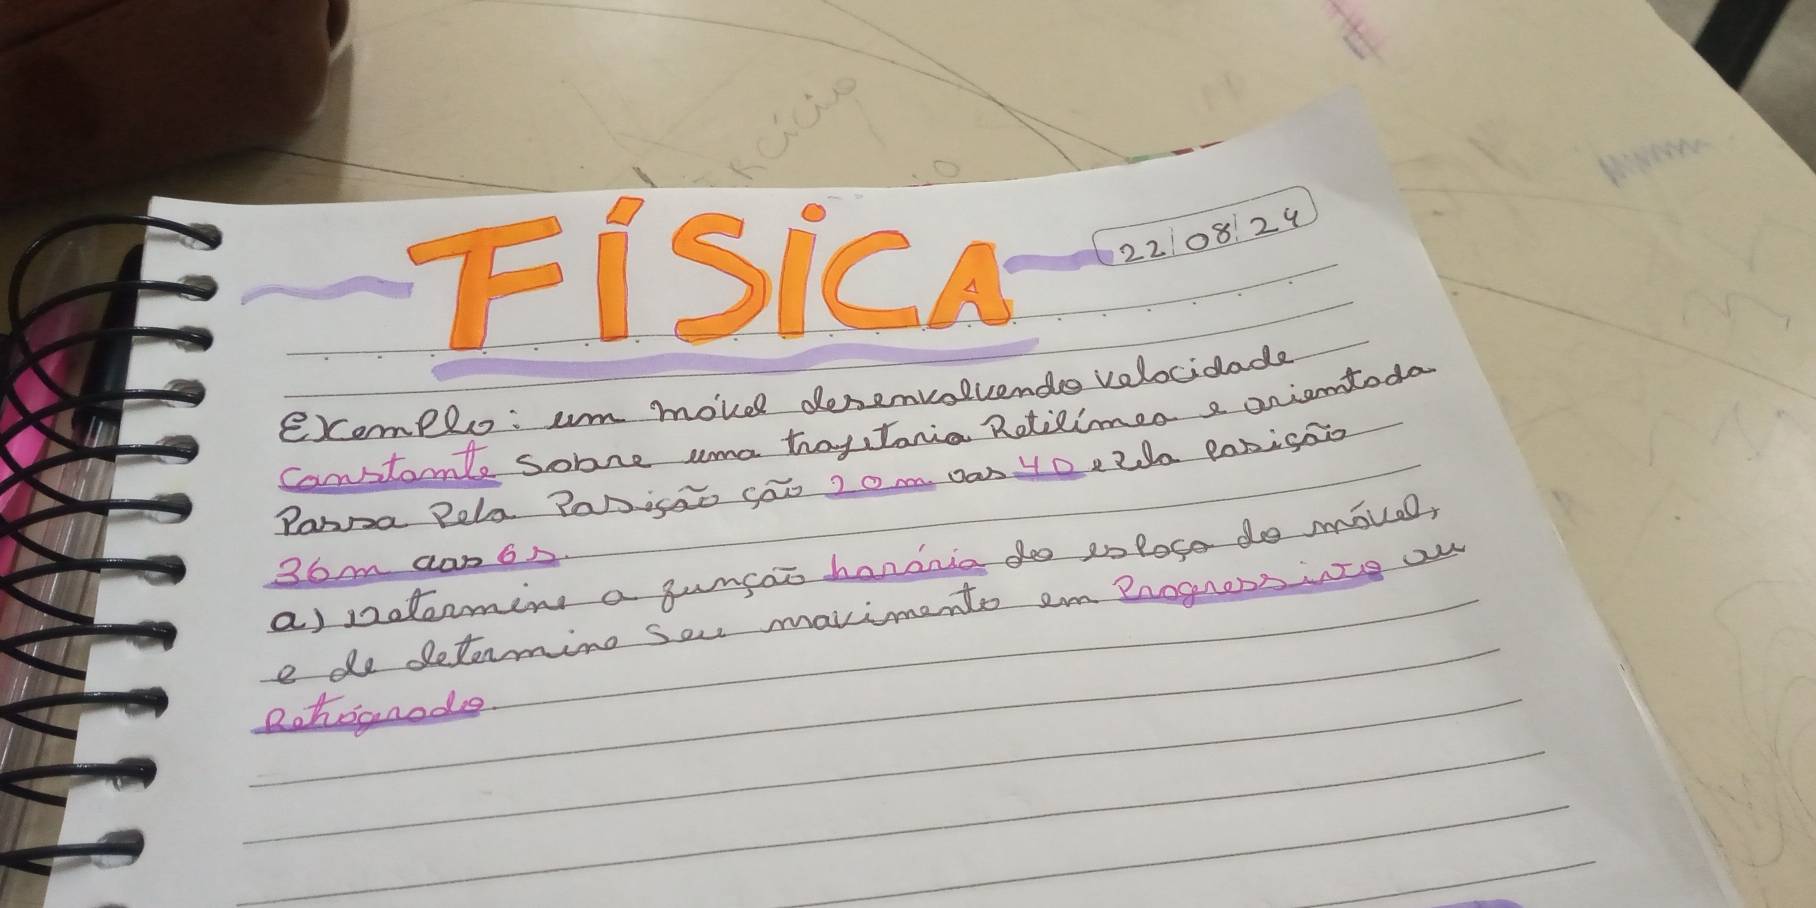 FÍSICA
22/08/24
Exemplo: um móvel desenvolvendo velocidade
constante sobre uma trajetoria Retilímea e oriemtada
Passa Pela Posição ção 20m aos 4D e Pela posição
36m aos 6s.
a) Determine a função horária do espaço do móvel,
e de determine seu movimento em Progressivo ou
Retrógrado.